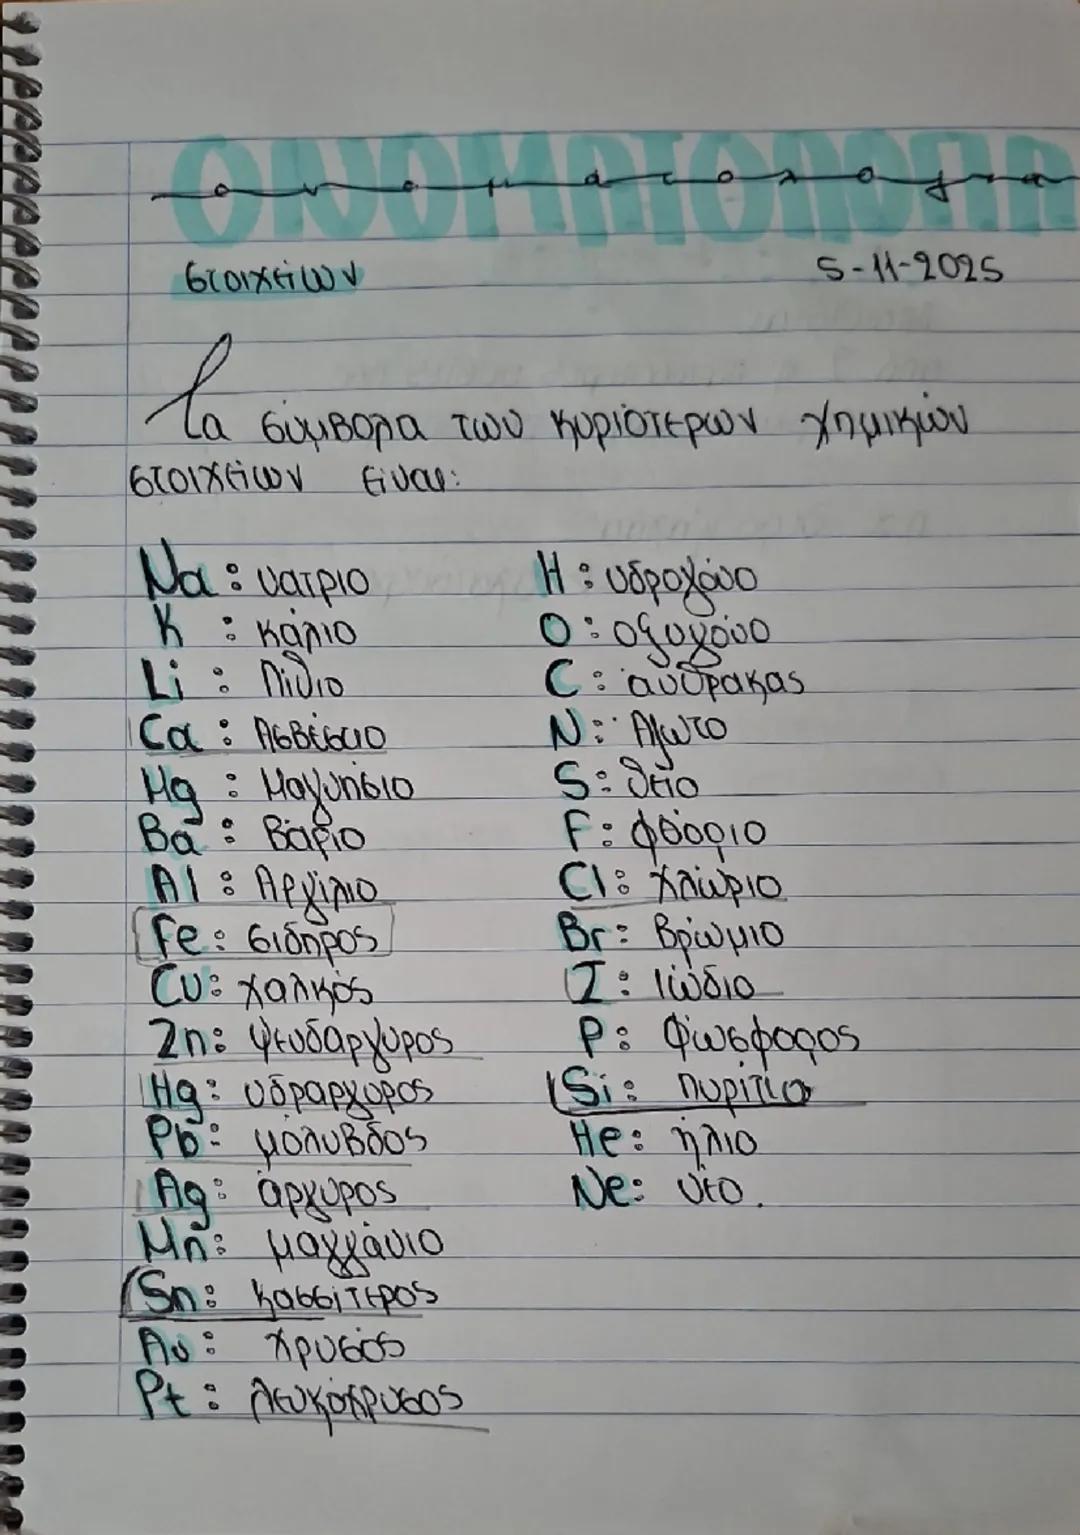 ονοματολογια
στοιχείων 5-11-2025
Τα σύμβολα των κυριότερων χημικών
στοιχείων είναι:
Na: νατριο
K: κάλιο
Li: Λίθιο
Ca: Ασβέστιο
Mg: Μαγνήσιο
Ba: Βάριο
Al: Αργίλιο
Fe: σιδηρος
Cu: χαλκός
Zn: ψευδαργυρος
Hg: υδραργυρος
Pb: μόλυβδος
Ag: άργυρος
Mn: μαγγάνιο
Sn: κασσίτερος
Au: χρυσός
Pt: λευκόχρυσος
H: υδρογόνο
O: οξυγόνο
C: άνθρακας
N: Άζωτο
S: θείο
F: φθόριο
Cl: χλώριο
Br: Βρώμιο
I: Ιώδιο
P: Φώσφορος
Si: πυρίτιο
He: ήλιο
Ne: νέο.